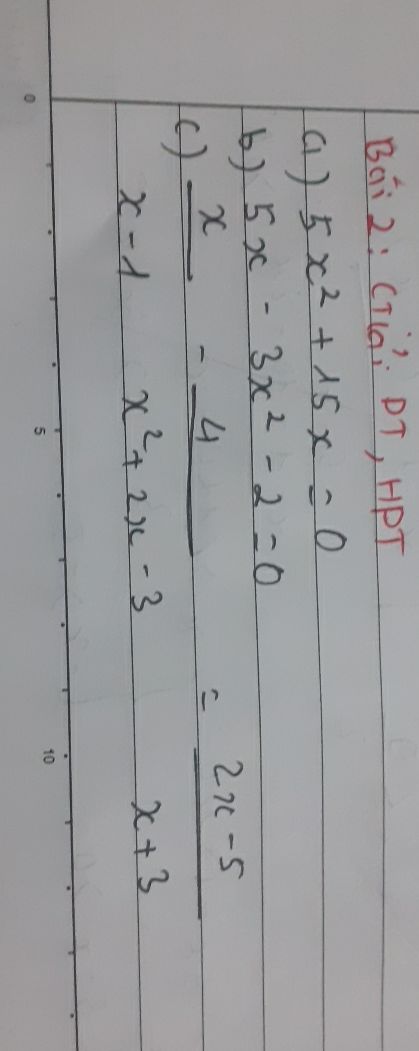 Bài 2: Giải PT, HPT
a) 5x² + 15x = 0
b) 5x - 3x² - 2 = 0
c) x/(x - 1) - 4/(x² + 2x - 3) = (2x - 5)/(x + 3)
0 5 10